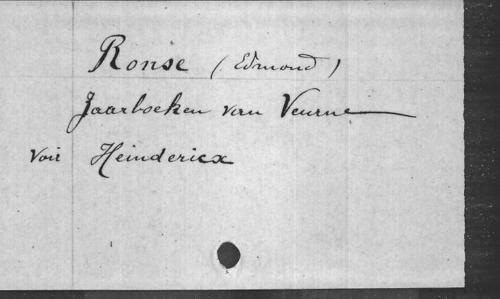 Ronse (Edmond)
Jaarboeken van Veurne
voir Heinderiex